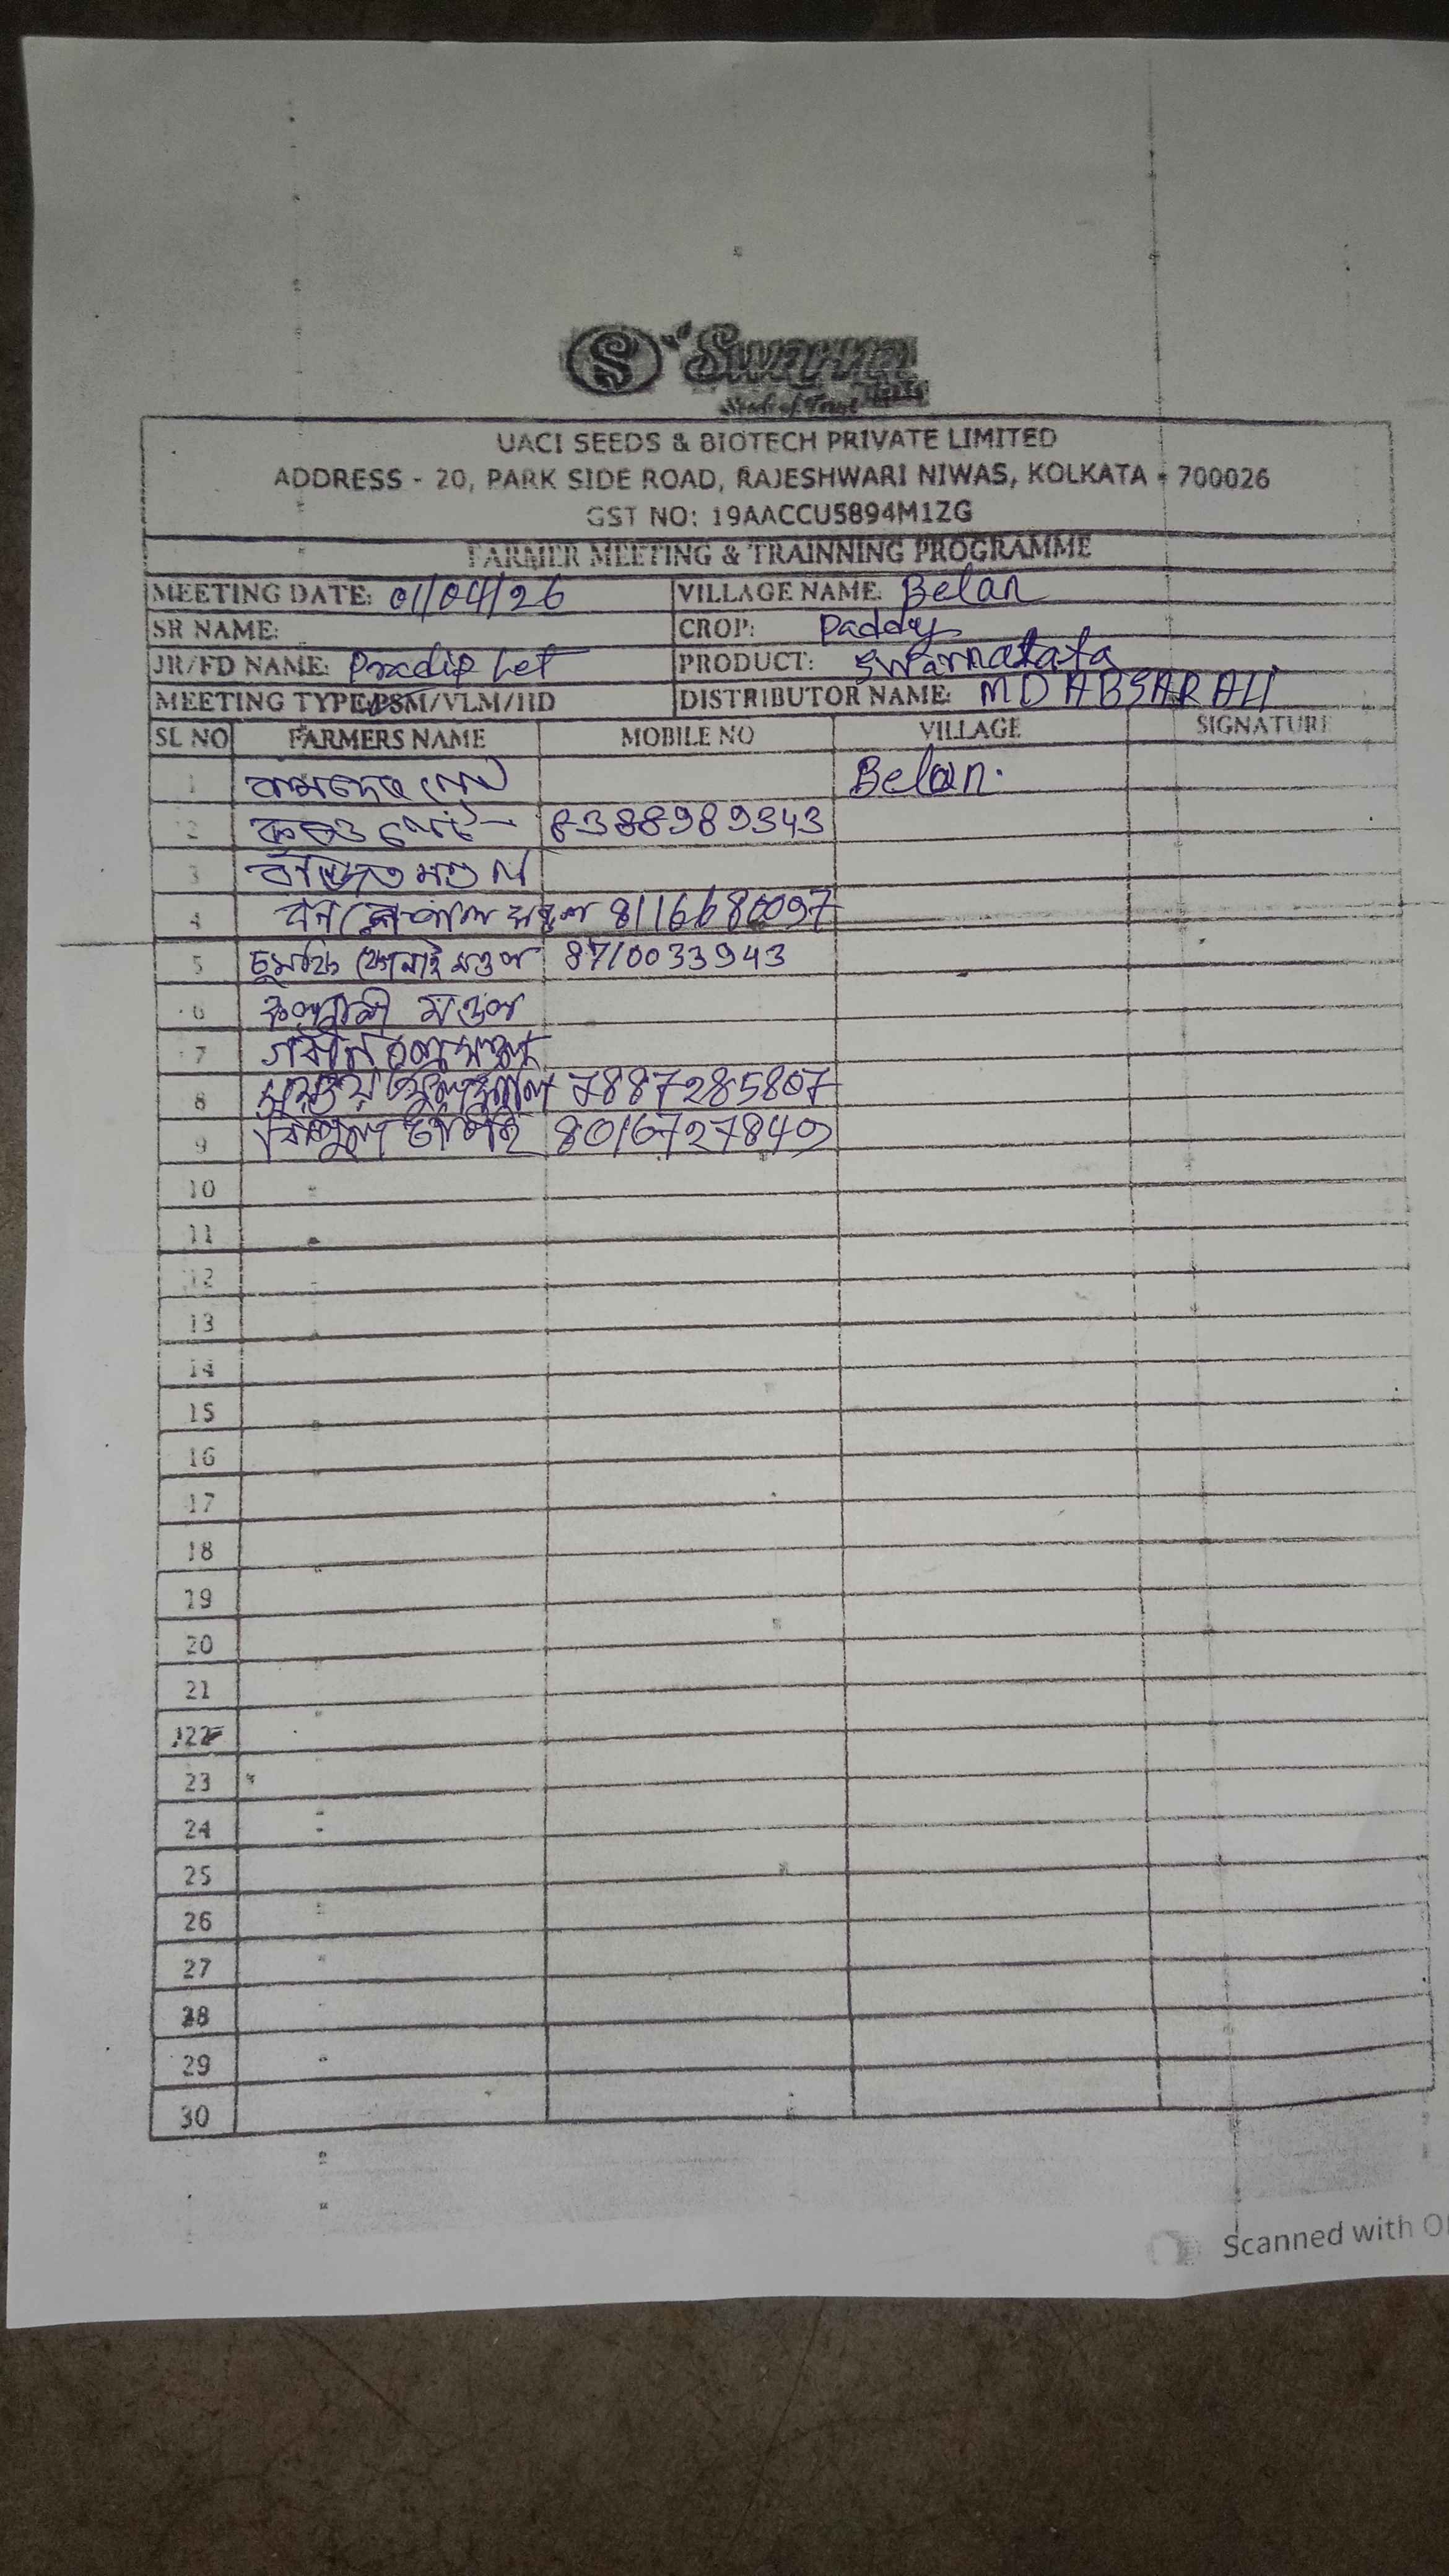 S Swarna
UACI SEEDS & BIOTECH PRIVATE LIMITED
ADDRESS - 20, PARK SIDE ROAD, RAJESHWARI NIWAS, KOLKATA - 700026
GST NO: 19AACCU5894M1ZG
FARMER MEETING & TRAINNING PROGRAMME
MEETING DATE: 01/04/26 VILLAGE NAME: Belan
SR NAME: CROP: Paddy
JR/FD NAME: Pradip Let PRODUCT: Swarnalata
MEETING TYPE: PSM/VLM/HD DISTRIBUTOR NAME: MD ABSAR ALI
SL NO FARMERS NAME MOBILE NO VILLAGE SIGNATURE
1 Belan.
2 8388989343
3 মণ্ডল
4 মণ্ডল
5 মণ্ডল 8710033943
6 মণ্ডল
7
8 7887285807
9 8016727849
10
11
12
13
14
15
16
17
18
19
20
21
22
23
24
25
26
27
28
29
30
Scanned with